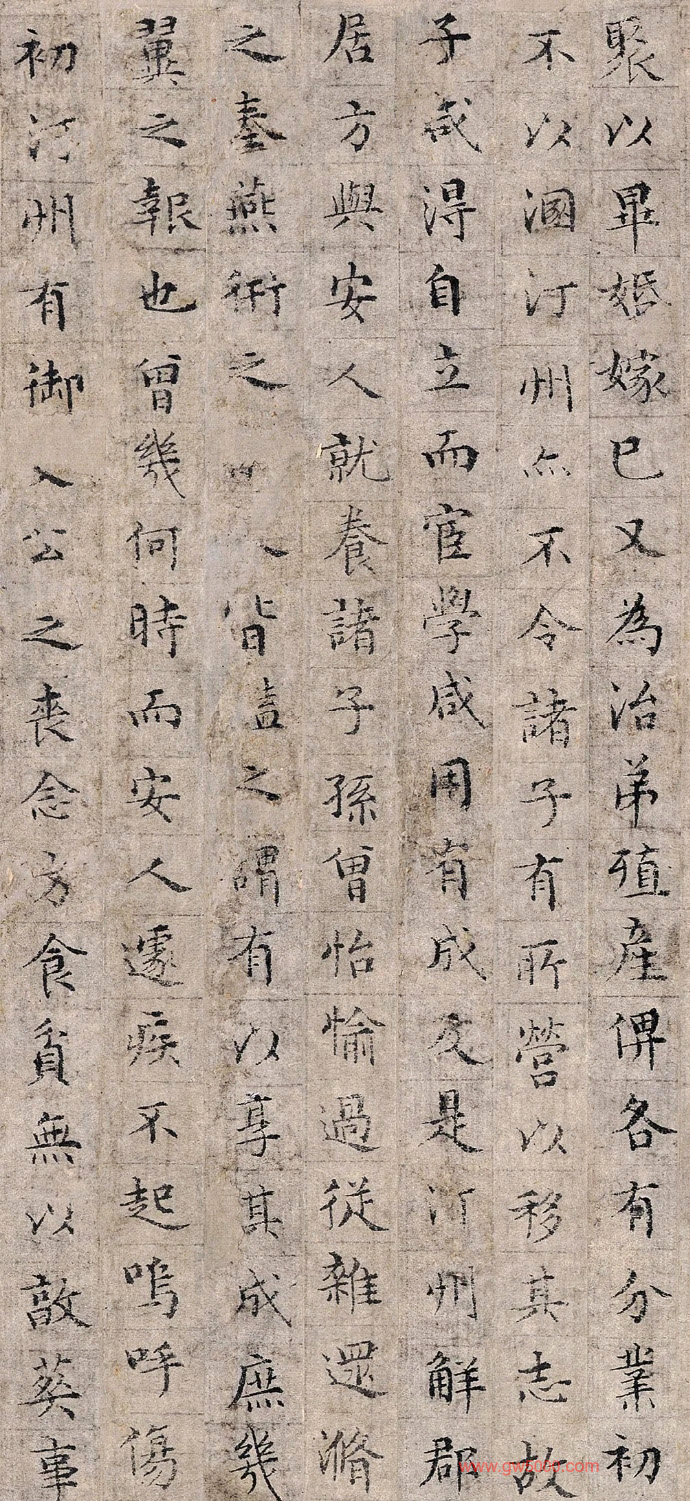 聚以畢婚嫁已又為治弟殖產俾各有分業初
不以溷汀州亦不令諸子有所營以移其志故
子咸得自立而宦學咸用有成及是汀州解郡
居方與安人就養諸子孫曾怡愉過從雜還滫
之奉燕衎之 皆 之謂有以享其成庶幾
翼之報也曾幾何時而安人遽疾不起嗚呼傷
初汀州有御 公之喪念方食貧無以敦葬事
www.gw5000.com